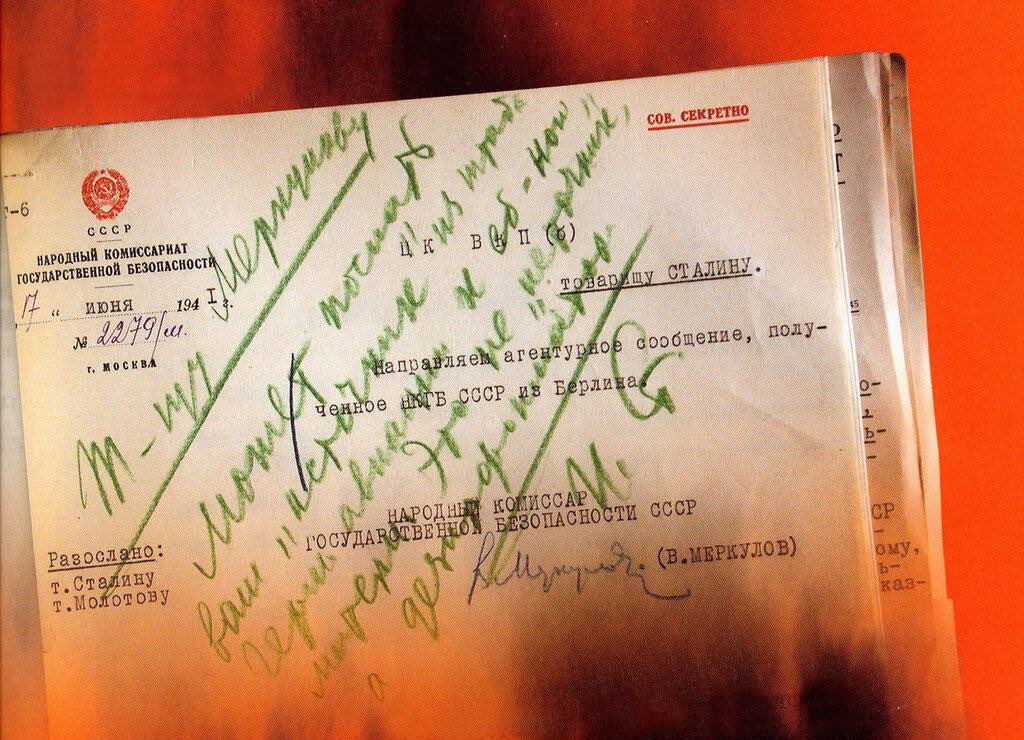 СОВ. СЕКРЕТНО
Г-6
СССР
НАРОДНЫЙ КОМИССАРИАТ
ГОСУДАРСТВЕННОЙ БЕЗОПАСНОСТИ
17 „ ИЮНЯ 1941 г.
№ 2279/м.
г. МОСКВА
ЦК ВКП(б)
товарищу СТАЛИНУ.
Направляем агентурное сообщение, полу-
ченное НКГБ СССР из Берлина.
НАРОДНЫЙ КОМИССАР
ГОСУДАРСТВЕННОЙ БЕЗОПАСНОСТИ СССР
(В.МЕРКУЛОВ)
Разослано:
т.Сталину
т.Молотову
Т-щу Меркулову
Может послать
ваш "источник" из штаба
герм. авиации к еб-ной
матери. Это не "источник",
а дезинформатор.
И. Ст
СР
ому,
ь-
каз-